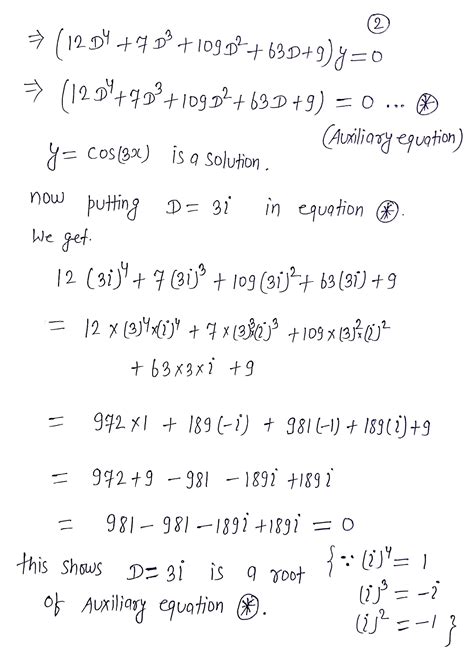 ②
⇒ (12D⁴+7D³+109D²+63D+9)y=0
⇒ (12D⁴+7D³+109D²+63D+9) = 0 ... ⊛
(Auxiliary equation)
y= cos(3x) is a solution.
now putting D= 3i in equation ⊛.
We get.
12 (3i)⁴ + 7 (3i)³ + 109 (3i)² + 63 (3i) + 9
= 12 × (3)⁴×(i)⁴ + 7 × (3)³×(i)³ + 109 × (3)²×(i)²
+ 63×3×i +9
= 972 ×1 + 189 (-i) + 981 (-1) + 189(i)+9
= 972+9 - 981 - 189i +189i
= 981 - 981 - 189i + 189i = 0
this shows D= 3i is a root
of Auxiliary equation ⊛.
{∵ (i)⁴ = 1
(i)³ = -i
(i)² = -1 }